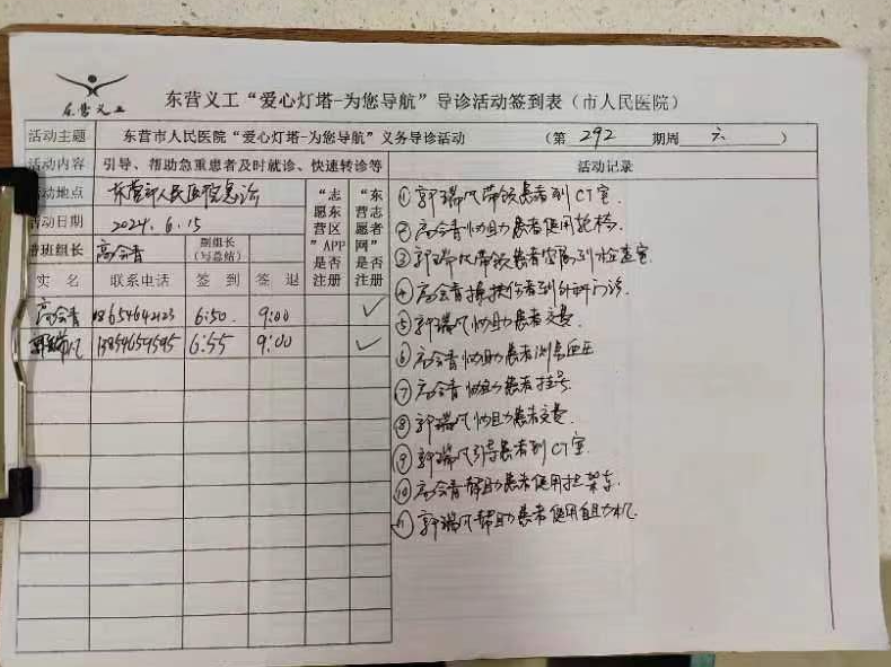 东营义工
东营义工“爱心灯塔-为您导航”导诊活动签到表（市人民医院）
活动主题 东营市人民医院“爱心灯塔-为您导航”义务导诊活动 （第 292 期周 六 ）
活动内容 引导、帮助急重患者及时就诊、快速转诊等 活动记录
动地点 东营市人民医院急诊
活动日期 2024.6.15
带班组长 高会青 副组长（写总结）
“志愿东营区”APP是否注册
“东营志愿者网”是否注册
实 名 联系电话 签 到 签 退
高会青 18654642123 6:50. 9:00 ✓
郭瑞凡 13854659595 6:55 9:00 ✓
① 郭瑞凡带领患者到CT室.
② 高会青协助患者使用轮椅.
③ 郭瑞凡带领患者家属到检查室.
④ 高会青搀扶伤者到外科门诊.
⑤ 郭瑞凡协助患者交费.
⑥ 高会青协助患者测量血压
⑦ 高会青协助患者挂号.
⑧ 郭瑞凡协助患者交费.
⑨ 郭瑞凡引导患者到CT室.
⑩ 高会青帮助患者使用担架车.
⑪ 郭瑞凡帮助患者使用自助机.